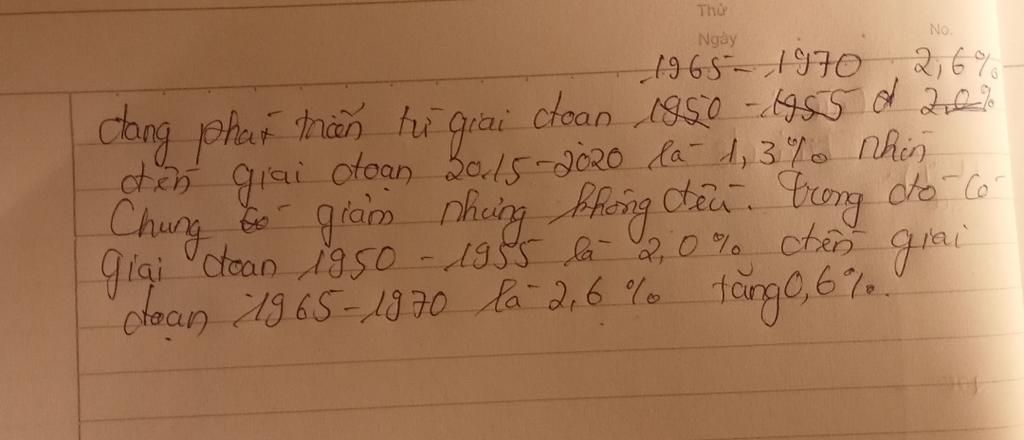 Thứ
Ngày
No.
1965 - 1970 2,6%
đang phát triển từ giai đoạn 1950 - 1955 d 2,0%
đến giai đoạn 2015-2020 là 1,3% nhìn
Chung có giảm nhưng không đều. Trong đó có
giai đoạn 1950 - 1955 là 2,0% đến giai
đoạn 1965-1970 là 2,6% tăng 0,6%.